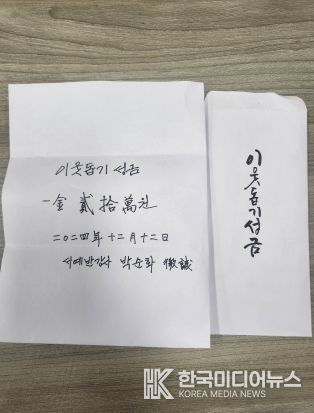 이웃돕기 성금
一金 貳拾萬원
二〇二四年 十二月 十二日
서예반강사 박순화 微誠
이웃돕기성금
한국미디어뉴스
KOREA MEDIA NEWS